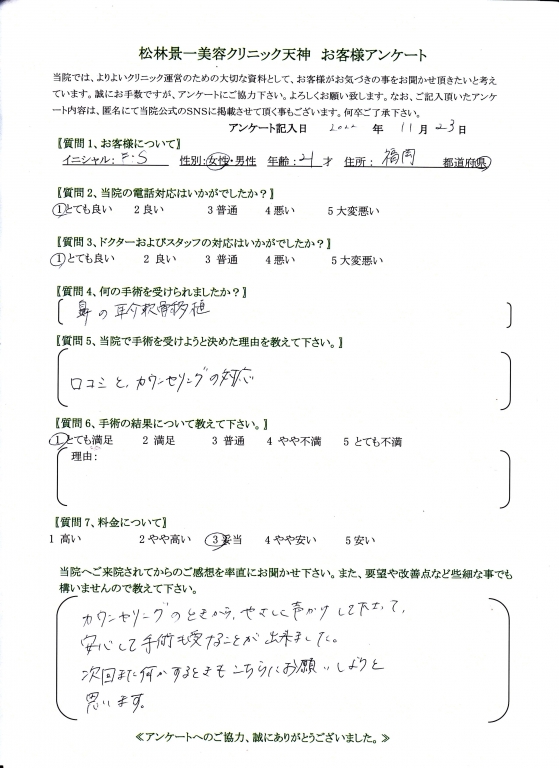 松林景一美容クリニック天神 お客様アンケート
当院では、よりよいクリニック運営のための大切な資料として、お客様がお気づきの事をお聞かせ頂きたいと考え
ています。誠にお手数ですが、アンケートにご協力下さい。よろしくお願い致します。なお、ご記入頂いたアンケ
ート内容は、匿名にて当院公式のSNSに掲載させて頂く事もございます。何卒ご了承下さい。
アンケート記入日 2022 年 11 月 23 日
〖質問1、お客様について〗
イニシャル: F.S 性別:女性・男性 年齢:21 才 住所: 福岡 都道府県
〖質問2、当院の電話対応はいかがでしたか?〗
1とても良い 2 良い 3 普通 4 悪い 5 大変悪い
〖質問3、ドクターおよびスタッフの対応はいかがでしたか?〗
1とても良い 2 良い 3 普通 4 悪い 5 大変悪い
〖質問4、何の手術を受けられましたか?〗
鼻の耳介軟骨移植
〖質問5、当院で手術を受けようと決めた理由を教えて下さい。〗
口コミと、カウンセリングの対応
〖質問6、手術の結果について教えて下さい。〗
1とても満足 2 満足 3 普通 4 やや不満 5 とても不満
理由:
〖質問7、料金について〗
1 高い 2 やや高い 3 妥当 4 やや安い 5 安い
当院へご来院されてからのご感想を率直にお聞かせ下さい。また、要望や改善点など些細な事でも
構いませんので教えて下さい。
カウンセリングのときから、やさしく声かけして下さって、
安心して手術も受けることが出来ました。
次回また何かするときもこちらにお願いしようと
思います。
≪アンケートへのご協力、誠にありがとうございました。≫